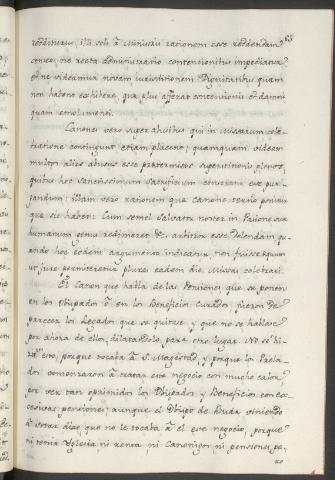 65
reddituum, illa soli à
rationem esse reddendam,
contentionibus impediatur
videamur novam iurisdictionem Dignitatibus quam
non habent exhibere, quæ plus afferat contentionis et damni
quam emolumenti.
Canones vero super abusibus qui in Missarum cele-
bratione contingunt etiam placent; quamquam videam
multos alios abusus esse prætermissos superstitionis plenos,
quibus hoc Sanctissimum Sacrificium
gandum: illam vero rationem quæ canone tertio ponitur
quæ sic habet: Cum semel Salvator noster in Passione sua
humanum genus redimeret &c. arbitror esse delendam qu-
ando hoc eodem argumento indicatur non fuisse
ut jure permitterentur plures eadem die Missas celebrari.
El Canon que habla de las Pensiones que se ponen
en los Obispados ô en los Beneficios Curados, fueron de
parecer los Legados que se quitase y que no se hablase
por ahora de ellos, dilatandolo para otro lugar. No se hi-
zo esto, porque tocaba à S. Magestad, y porque los Perla-
dos comenzaron à tratar este negocio con mucho calor,
por ver tan oprimidos los Obispados y Beneficios con ec-
cesivas pensiones; aunque el Obispo de Buda viniendo
à votar dixo, que no le tocaba à el este negocio, porque
ni tenia Yglesia ni renta, ni Canonigos ni pensiones, pe-
ro